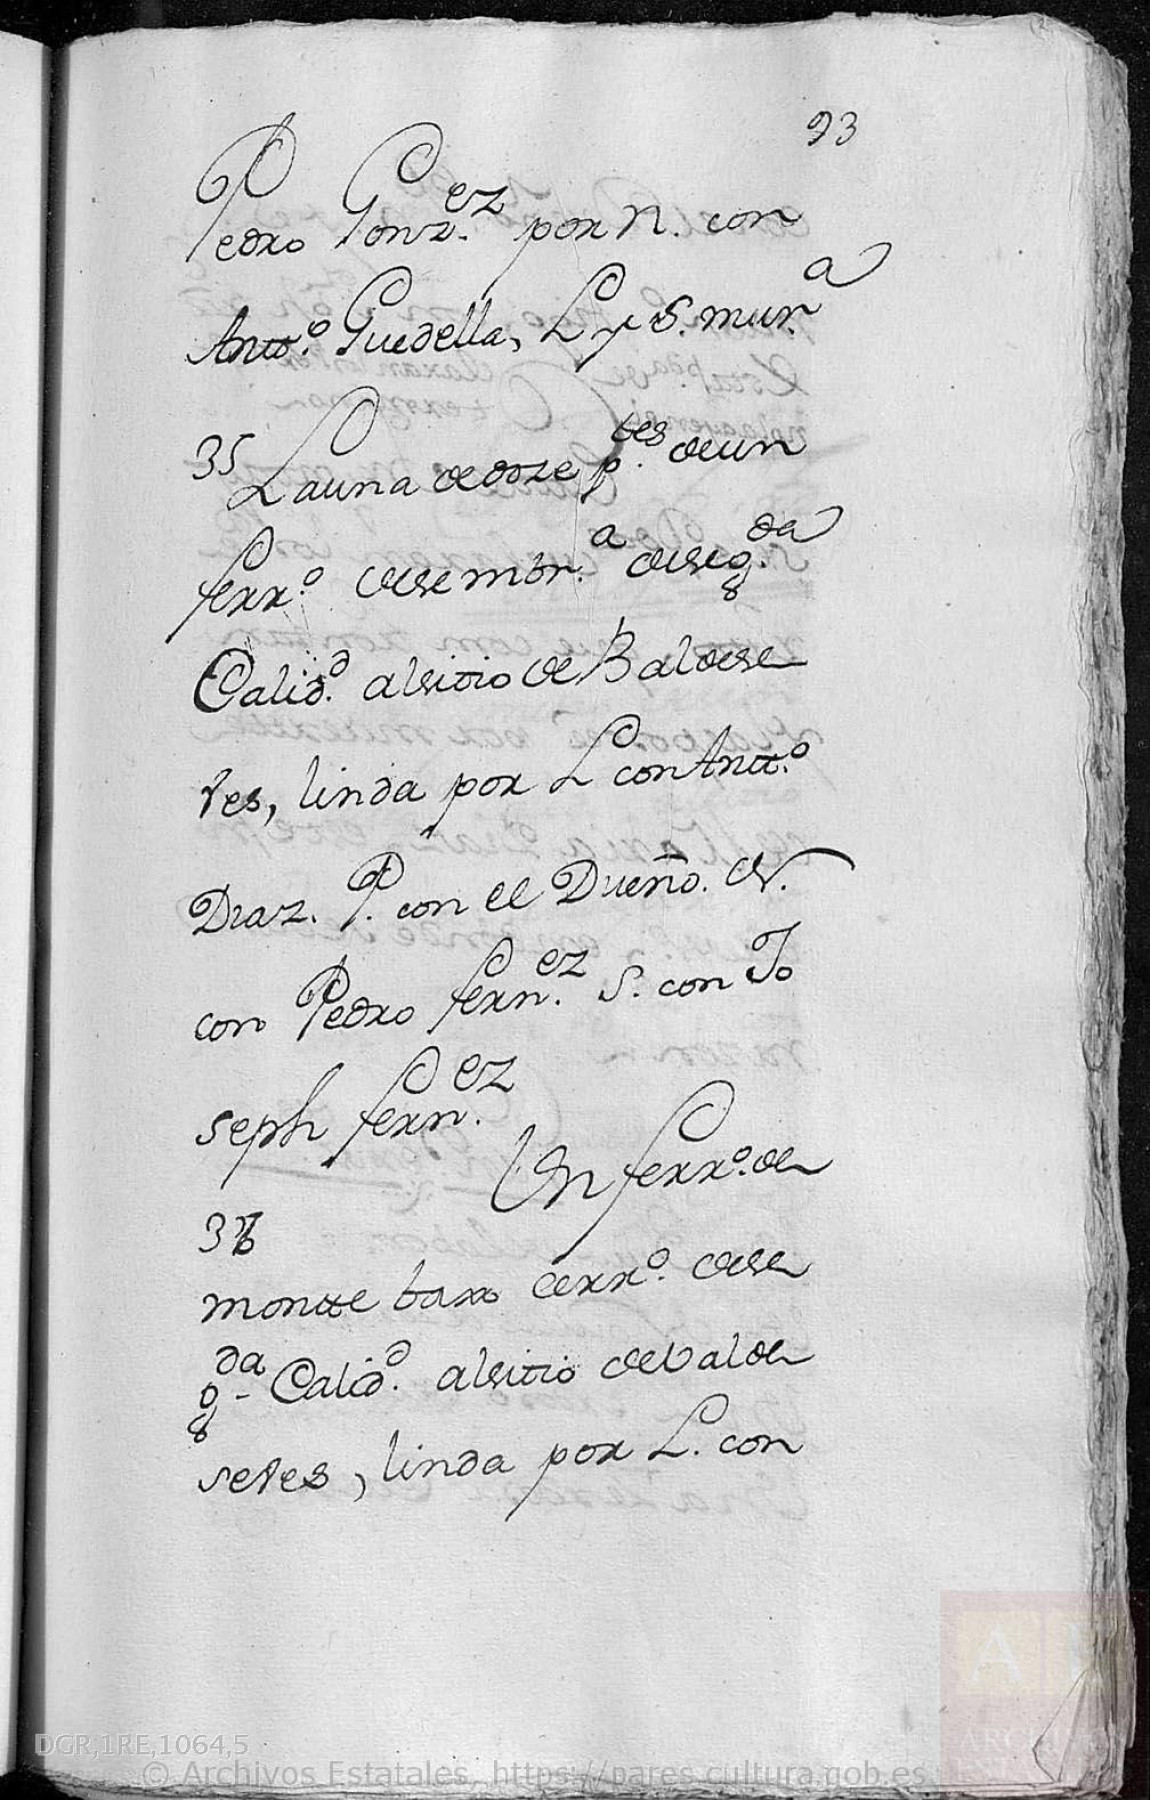 93
Pedro Gonz.ez por N. con
Antt.o Guedella, L y S. mur.a
35 La una de doze p.tes de un
ferr.o de sembr.a de seg.da
Calid.d al sitio de Baldese
res, linda por L con Antt.o
Diaz. P. con el Dueño. N.
con Pedro fern.ez S. con Jo
seph fern.ez
Un ferr.o de
36
montte baxo cerr.o de se
g.da Calid.d al sitio de balde
seres, linda por L. con
DGR,1RE,1064,5
© Archivos Estatales, https://pares.cultura.gob.es